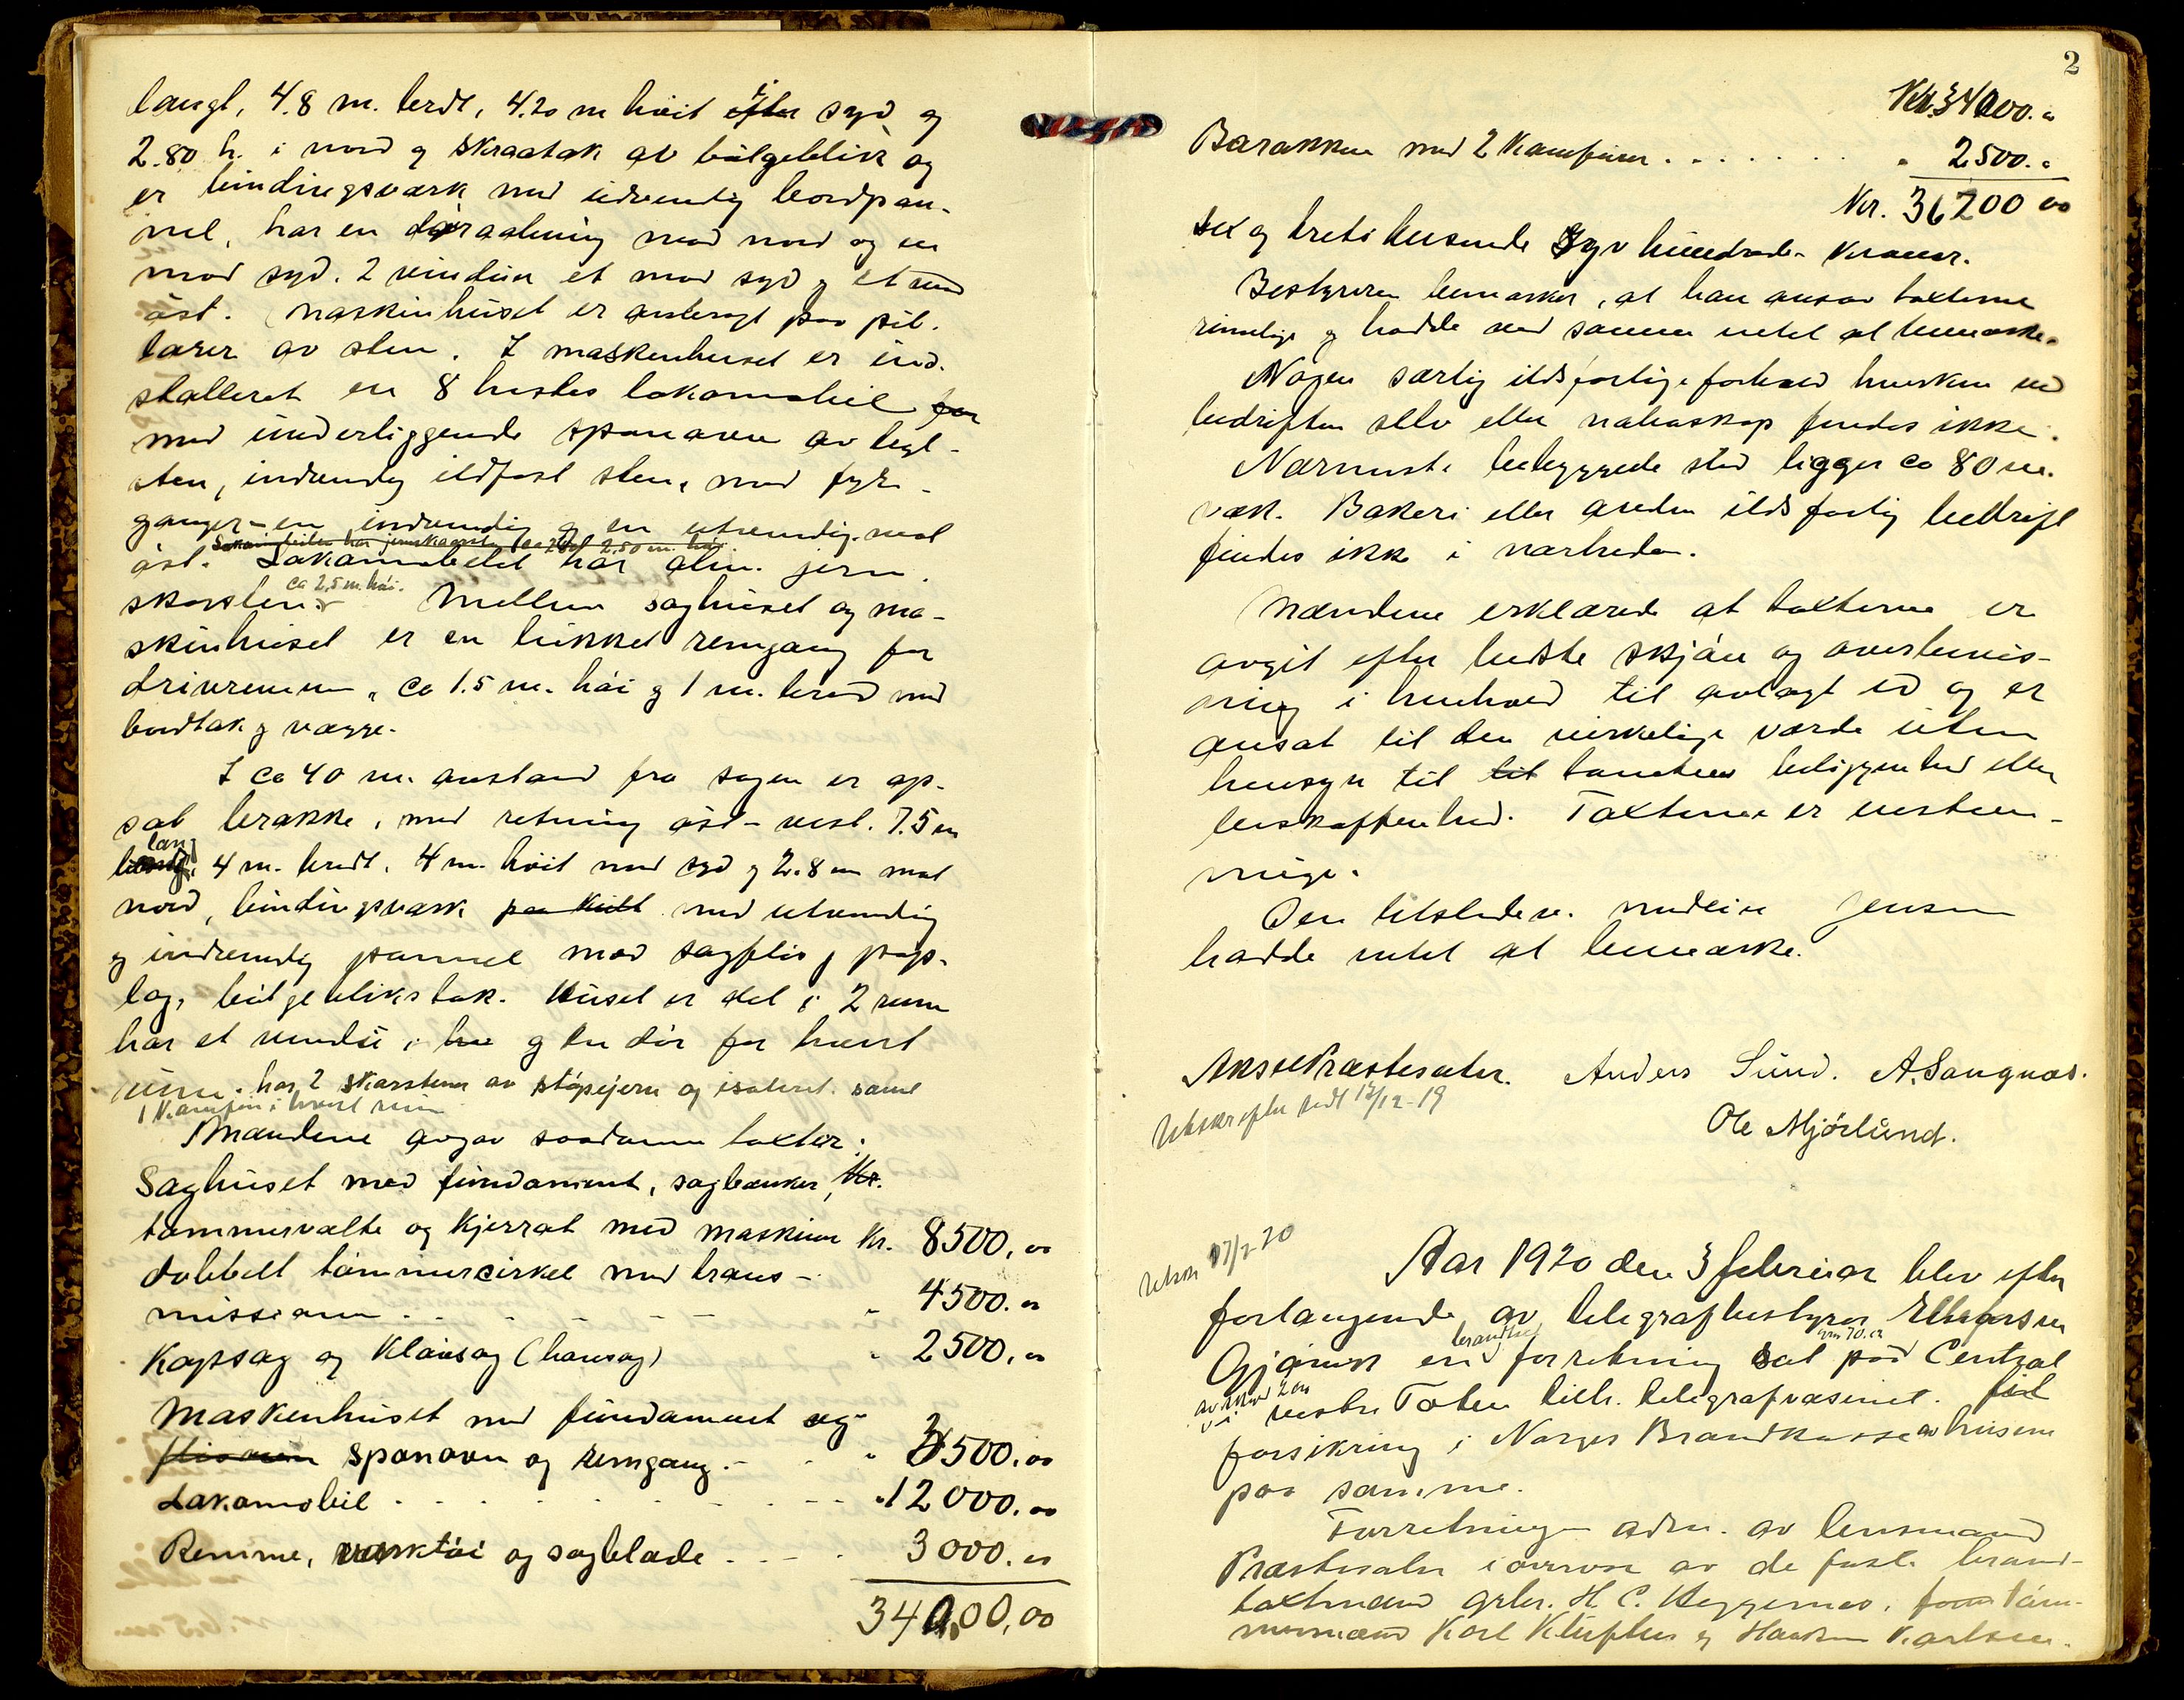 langt, 4.8 m. bredt, 4.20 m høit efter i syd og
2.80 h. i nord og skraatak av bølgeblik og
er bindingsværk med udvendig bordpan-
nel, har en døraabning mod nord og en
mod syd. 2 vinduer et mod syd og et mod
øst. Maskinhuset er anbragt paa pil-
larer av sten. I maskenhuset er ind-
stalleret en 8 hestes lokomobil for
med underliggende sponovn av tegl-
sten, indvendig ildfast sten, med fyr-
ganger - en indvendig og en utvendig mot
Lokomobilen har jernskorsten ca 2 2,50 m. høi.
øst. Lokomobilet har alm. jern-
skorsten ca 2,5 m. høi. Mellem saghuset og ma-
skinhuset er en lukket remgang for
drivremmen, ca 1.5 m. høi og 1 m. bred med
bordtak og vægge.
I ca 40 m. avstand fra sagen er op-
sat brakke, med retning øst - vest. 7.5 m
lang, 4 m. bredt, 4 m. høit mod syd og 2.8 m mot
nord, bindingsværk med utvendig
og indvendig pannel med sagflis og pap-
lag, bølgeblikstak. Huset er delt i 2 rum
har et vindu i hver og en dør for hvert
rum. har 2 skorstene av støpejern og isoleret samt
1 Kamfin i hvert rum
Mændene avgav saadanne taxter:
Saghuset med fundament, sagbænker, Kr.
tømmervælte og Kjerrat med maskineri Kr. 8500,00
dobbelt tømmercirkel med trans-
mission - - - " 4500.00
Kapsag og Kløvsag (høvsag) " 2500,00
Maskenhuset med fundament og
sponovn og remgang. - - " 3500,00
Lokomobil - - - - " 12000,00
Remme, værktøi og sagblade - - - 3000.00
34000,00
2
Kr. 34000.00
Barakken med 2 Kamfiner . . . . . . . " 2500.00
Kr. 36200 00
sex og treti tusende syv hundrede Kroner.
Bestyreren bemærket, at han ansaa taxterne
rimelige og hadde ved samme intet at bemærke.
Nogen særlig ildsfarlige forhold hverken ved
bedriften selv eller naboskap findes ikke.
Nærmeste bebyggede sted ligger ca 80 m.
væk. Bakeri eller anden ildsfarlig bedrift
findes ikke i nærheden.
Mændene erklærede at taxterne er
avgit efter bedste skjøn og overbevis-
ning i henhold til avlagt ed og er
ansat til den virkelige værde uten
hensyn til til tomtens beliggenhed eller
beskaffenhed. Taxterne er enstem-
mige.
Den tilstedev. Jensen
hadde intet at bemærke.
Aksel Præstesæter. Anders Sund. A. Sangnæs.
Utskrifter sendt 13/12-19
Ole Mjørlund.
Utskr 17/2 20
Aar 1920 den 3 februar blev efter
forlangende av telegrafbestyrer
Gjøvik en brandtxt forretning sat paa Central
vestre Toten tilh. telegrafvæsenet. til
forsikring i Norges Brandkasse av husene
paa samme.
Forretningen adm. av lensmand
Præstesæter i overvær av de faste brand-
taxtmænd grbr. H. C. Heggernes, tøm-
mermænd Karl Klüften og Haakon Karlsen.